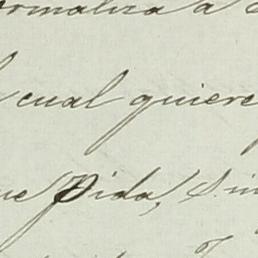 ormaliza a
cual quiere
ue Pida, Sin